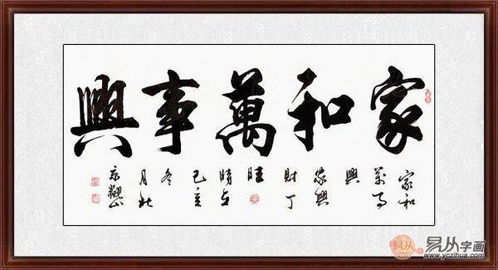 家和萬事興
家和
萬事
興
家興
財丁
旺
時在
己亥
冬
易从
易从字画
www.yczihua.com